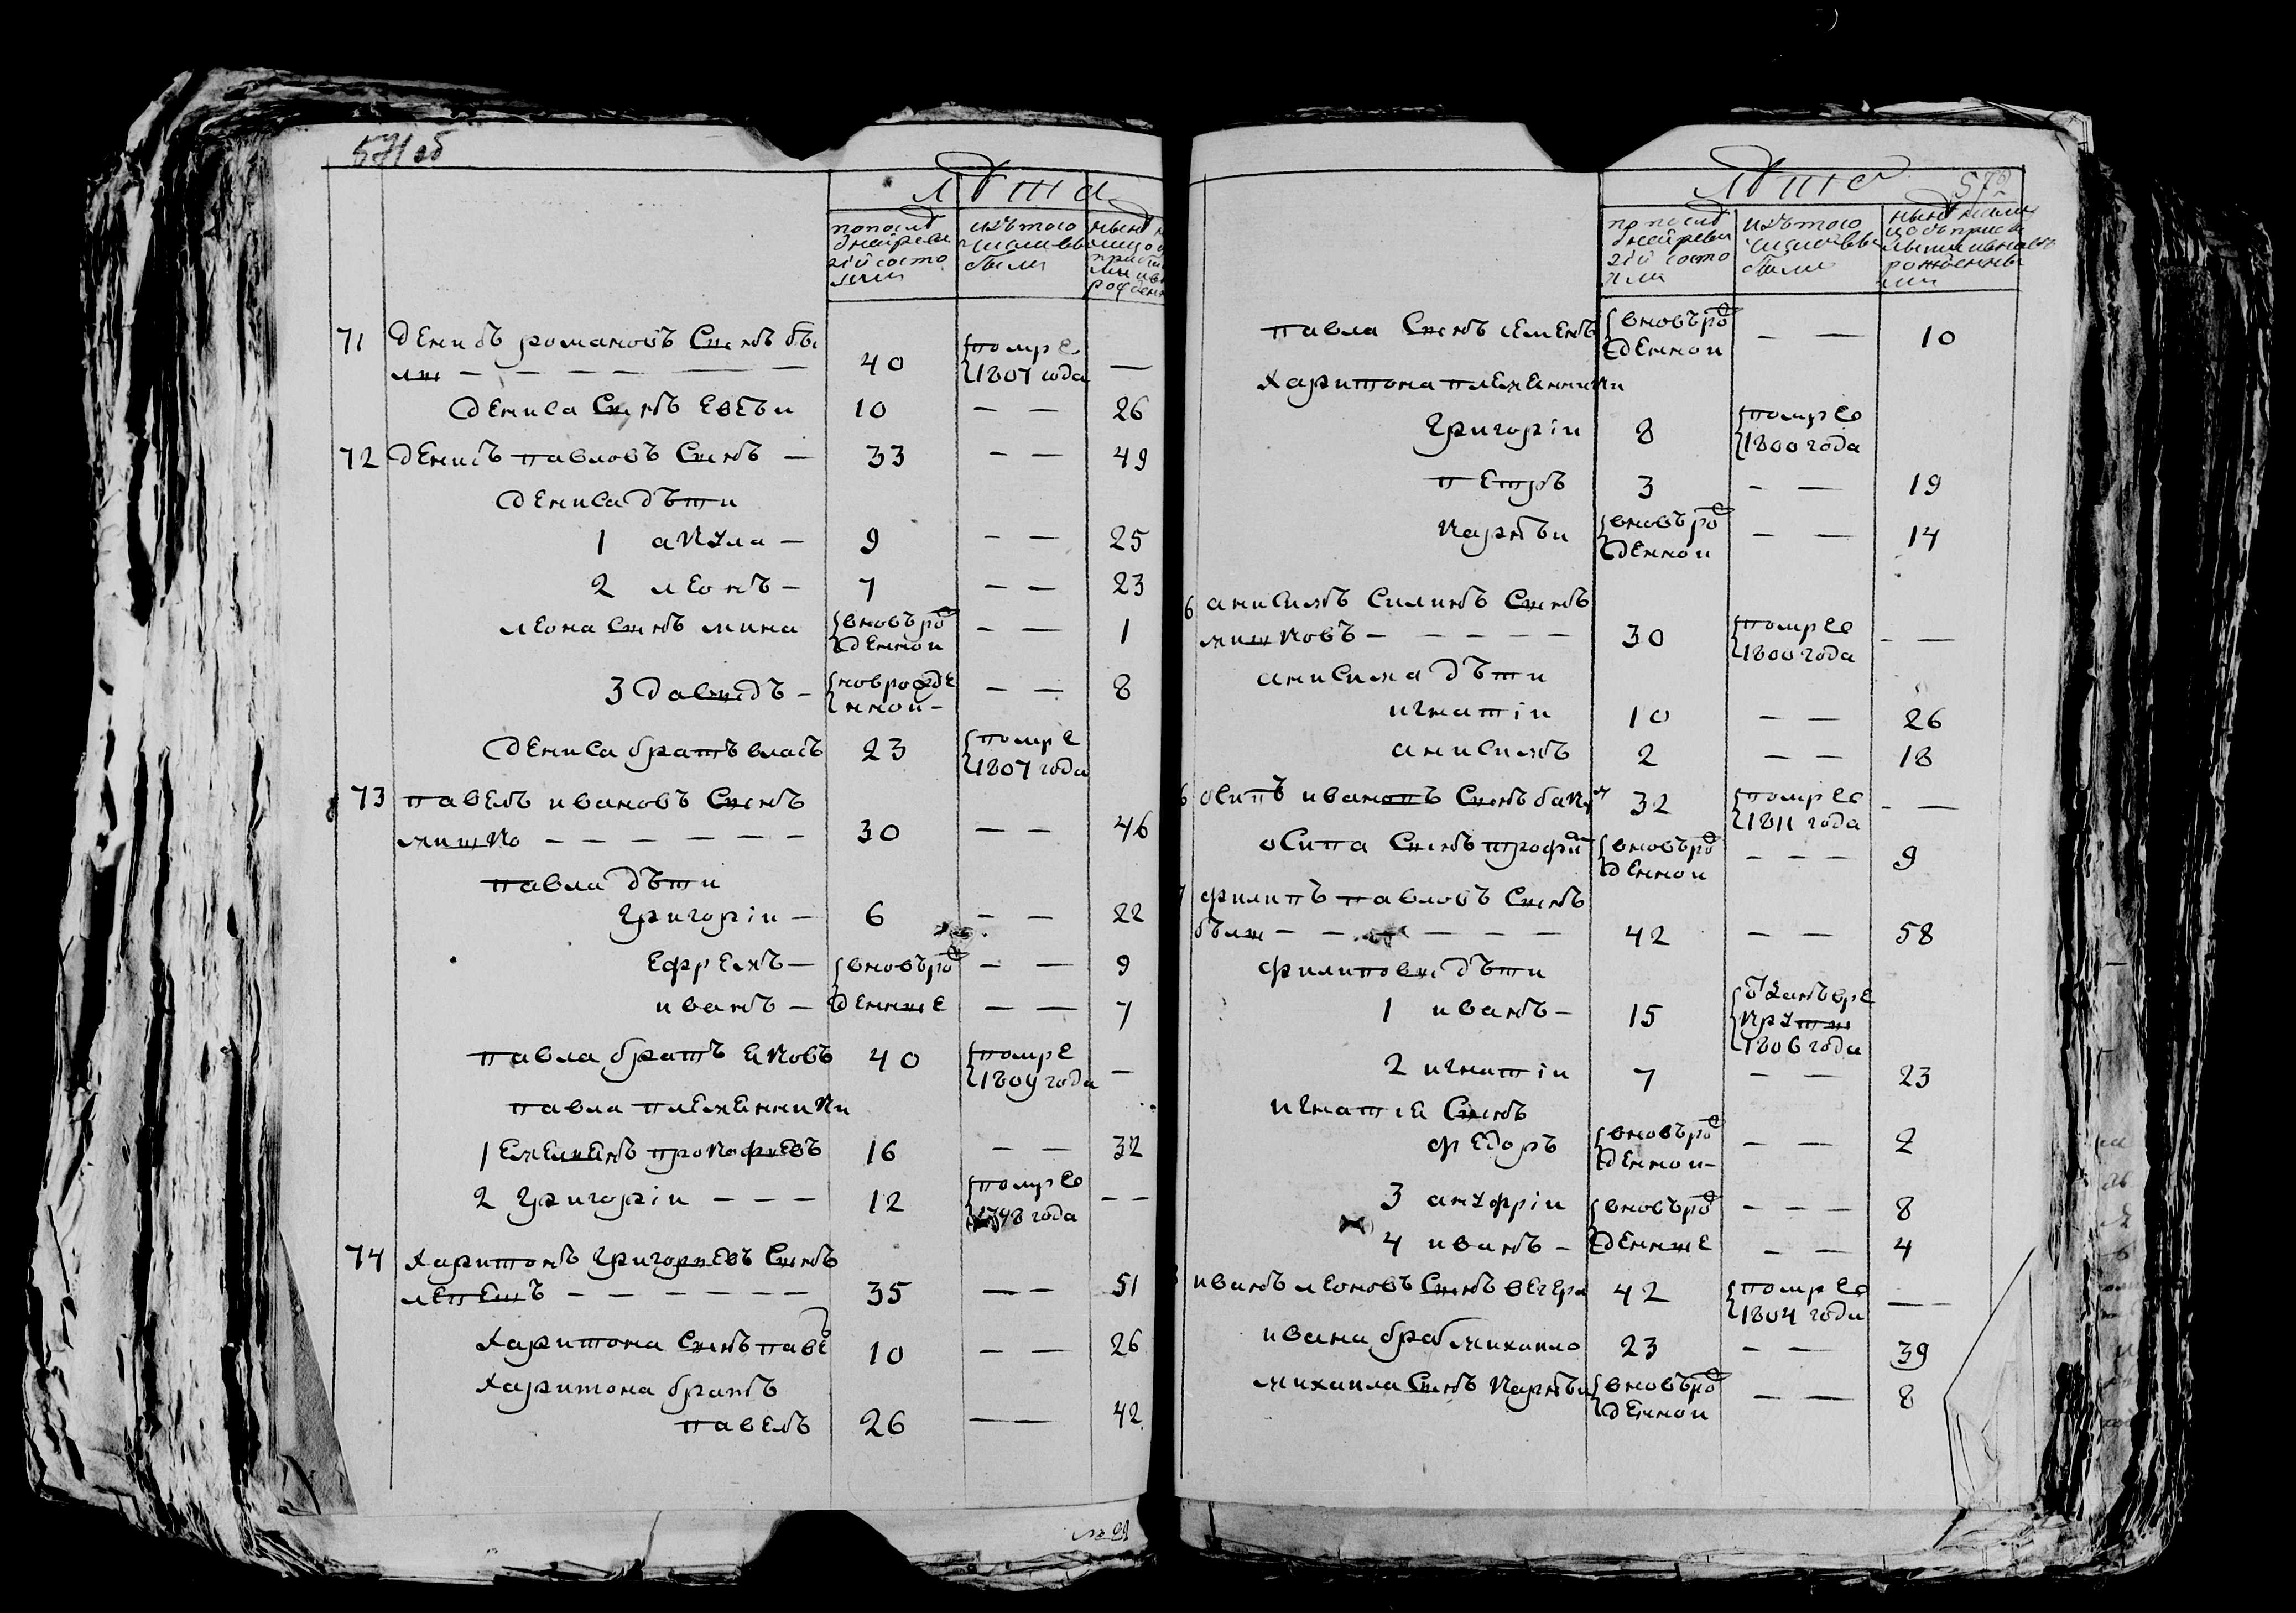 571 об
Лѣта
по послѣ
дней реви
зіи состо
яли
изъ того
числа вы
были
71 Денисъ романовъ Сынъ бы
лы — — — — — — 40 помре 1807 года —
Дениса Сынъ Евсѣи 10 — — 26
72 Денисъ павловъ Сынъ — 33 — — 49
Дениса дѣти
1 акула — 9 — — 25
2 леонъ — 7 — — 23
леона Сынъ мина вновьро жденнои — — 1
3 Давыдъ — новрожде ннои — — — 8
Дениса братъ власъ 23 помре 1807 года
73 павелъ ивановъ Сынъ
мишко — — — — — — 30 — — 46
павла дѣти
Григоріи — 6 — — 22
Ефремъ — вновьро — — 9
иванъ — жденные — — 7
павла братъ яковъ 40 помре 1809 года —
павла племянники
1 Емельянъ прокофьевъ 16 — — 32
2 Григоріи — — — 12 помре 1798 года — —
74 харитонъ Григорьевъ Сынъ
лепешъ — — — — — — 35 — — 51
харитона Сынъ паве 10 — — 26
харитона братъ
павелъ 26 — — 42
572
Лѣта
по послѣ
дней реви
зіи состо
яли
изъ того
числа вы
были
павла Сынъ семенъ вновьро жденнои — — 10
харитона племянники
Григоріи 8 помре 1800 года
петръ 3 — — 19
карпѣи вновьро жденнои — — 14
анисимъ Силинъ Сынъ
мишковъ — — — — — — 30 помре 1800 года — —
анисима дѣти
игнатіи 10 — — 26
анисимъ 2 — — 18
осипъ иванопъ Сынъ 32 помре 1811 года — —
осипа Сынъ трофи вновьро жденнои — — — 9
филипъ павловъ Сынъ
бѣлы — — — — — — 42 — — 58
филиповы дѣти
1 иванъ — 15 в рекруты 1806 года
2 игнатіи 7 — — 23
игнатія Сынъ
федоръ вновьро жденнои — — — 2
3 ануфріи вновьро — — — 8
4 иванъ — жденные — — 4
иванъ леоновъ Сынъ вечера 42 помре 1804 года — —
ивана бра михаило 23 — — 39
михаила Сынъ карпѣи вновьро жденнои — — 8